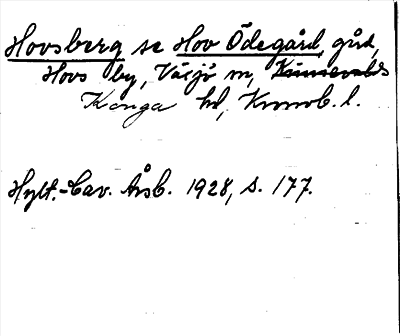 Hovsberg se Hov Ödegård, gård,
Hovs by, Växjö m, Kinnevalds
Konga hd, Kronob. l.
Hylt.-Cav. Årsb. 1928, s. 177.